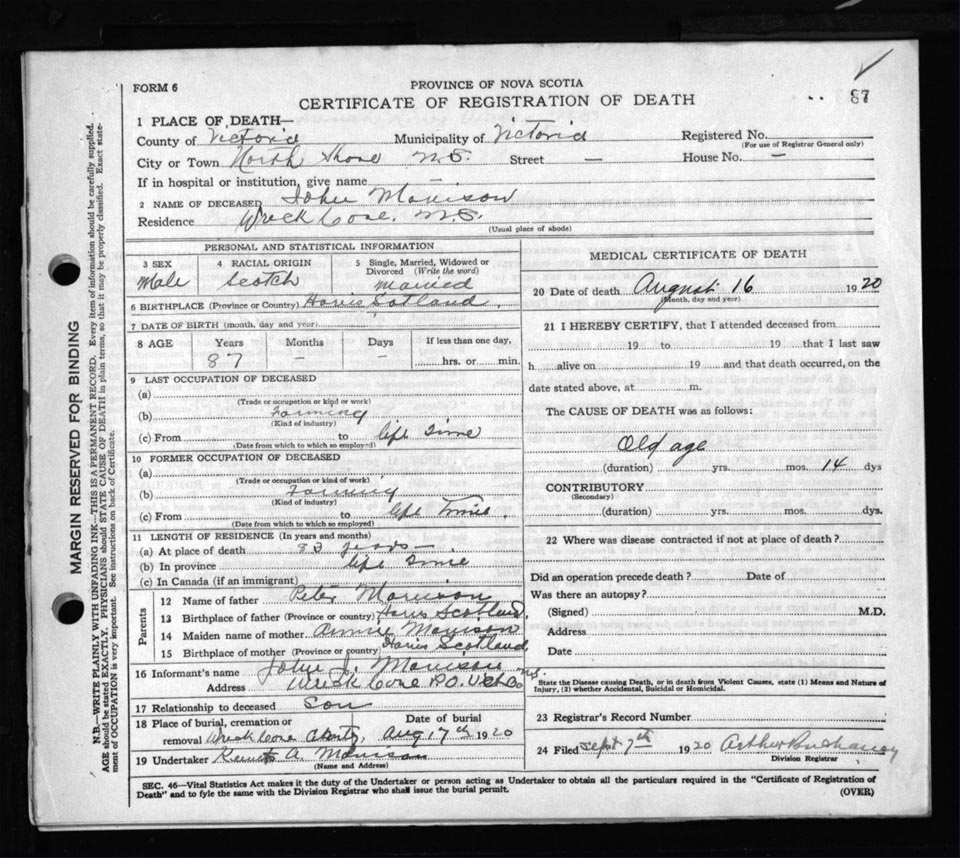 FORM 6
PROVINCE OF NOVA SCOTIA
CERTIFICATE OF REGISTRATION OF DEATH
87
1 PLACE OF DEATH—
County of Victoria Municipality of Victoria Registered No.
(For use of Registrar General only)
City or Town North Shore N.S. Street — House No. —
If in hospital or institution, give name —
2 NAME OF DECEASED John Morrison
Residence Wreck Cove, N.S.
(Usual place of abode)
PERSONAL AND STATISTICAL INFORMATION
3 SEX
Male
4 RACIAL ORIGIN
Scotch
5 Single, Married, Widowed or Divorced (Write the word)
Married
6 BIRTHPLACE (Province or Country) Harris Scotland
7 DATE OF BIRTH (month, day and year)
8 AGE Years Months Days If less than one day,
87 — — hrs. or min.
9 LAST OCCUPATION OF DECEASED
(a)
(Trade or occupation or kind of work)
(b) Farming
(Kind of industry)
(c) From to life time
(Date from which to which so employed)
10 FORMER OCCUPATION OF DECEASED
(a)
(Trade or occupation or kind of work)
(b) Farming
(Kind of industry)
(c) From to life time
(Date from which to which so employed)
11 LENGTH OF RESIDENCE (In years and months)
(a) At place of death 83 years
(b) In province life time
(c) In Canada (if an immigrant)
Parents
12 Name of father Peter Morrison
13 Birthplace of father (Province or country) Harris Scotland
14 Maiden name of mother Annie Morrison
15 Birthplace of mother (Province or country) Harris Scotland
16 Informant's name John J. Morrison
Address Wreck Cove P.O. Vict Co N.S.
17 Relationship to deceased Son
18 Place of burial, cremation or removal Wreck Cove
Date of burial Aug 17th 1920
19 Undertaker A. Morrison
(Name and Address)
MEDICAL CERTIFICATE OF DEATH
20 Date of death August 16 1920
(Month, day and year)
21 I HEREBY CERTIFY, that I attended deceased from
19 to 19 that I last saw
h alive on 19 and that death occurred, on the
date stated above, at m.
The CAUSE OF DEATH was as follows:
Old age
(duration) yrs. mos. 14 dys
CONTRIBUTORY
(Secondary)
(duration) yrs. mos. dys.
22 Where was disease contracted if not at place of death?
Did an operation precede death? Date of
Was there an autopsy?
(Signed) M.D.
Address
Date
State the Disease causing Death, or in death from Violent Causes, state (1) Means and Nature of
Injury, (2) whether Accidental, Suicidal or Homicidal.
23 Registrar's Record Number
24 Filed Sept 7th 1920 Arthur Buchanan
Division Registrar
SEC. 46—Vital Statistics Act makes it the duty of the Undertaker or person acting as Undertaker to obtain all the particulars required in the "Certificate of Registration of
Death" and to fyle the same with the Division Registrar who shall issue the burial permit.
(OVER)
MARGIN RESERVED FOR BINDING
N.B.—WRITE PLAINLY WITH UNFADING INK—THIS IS A PERMANENT RECORD. Every item of information should be carefully supplied.
AGE should be stated EXACTLY. PHYSICIANS should STATE CAUSE OF DEATH in plain terms, so that it may be properly classified. Exact state-
ment of OCCUPATION is very important. See instructions on back of Certificate.